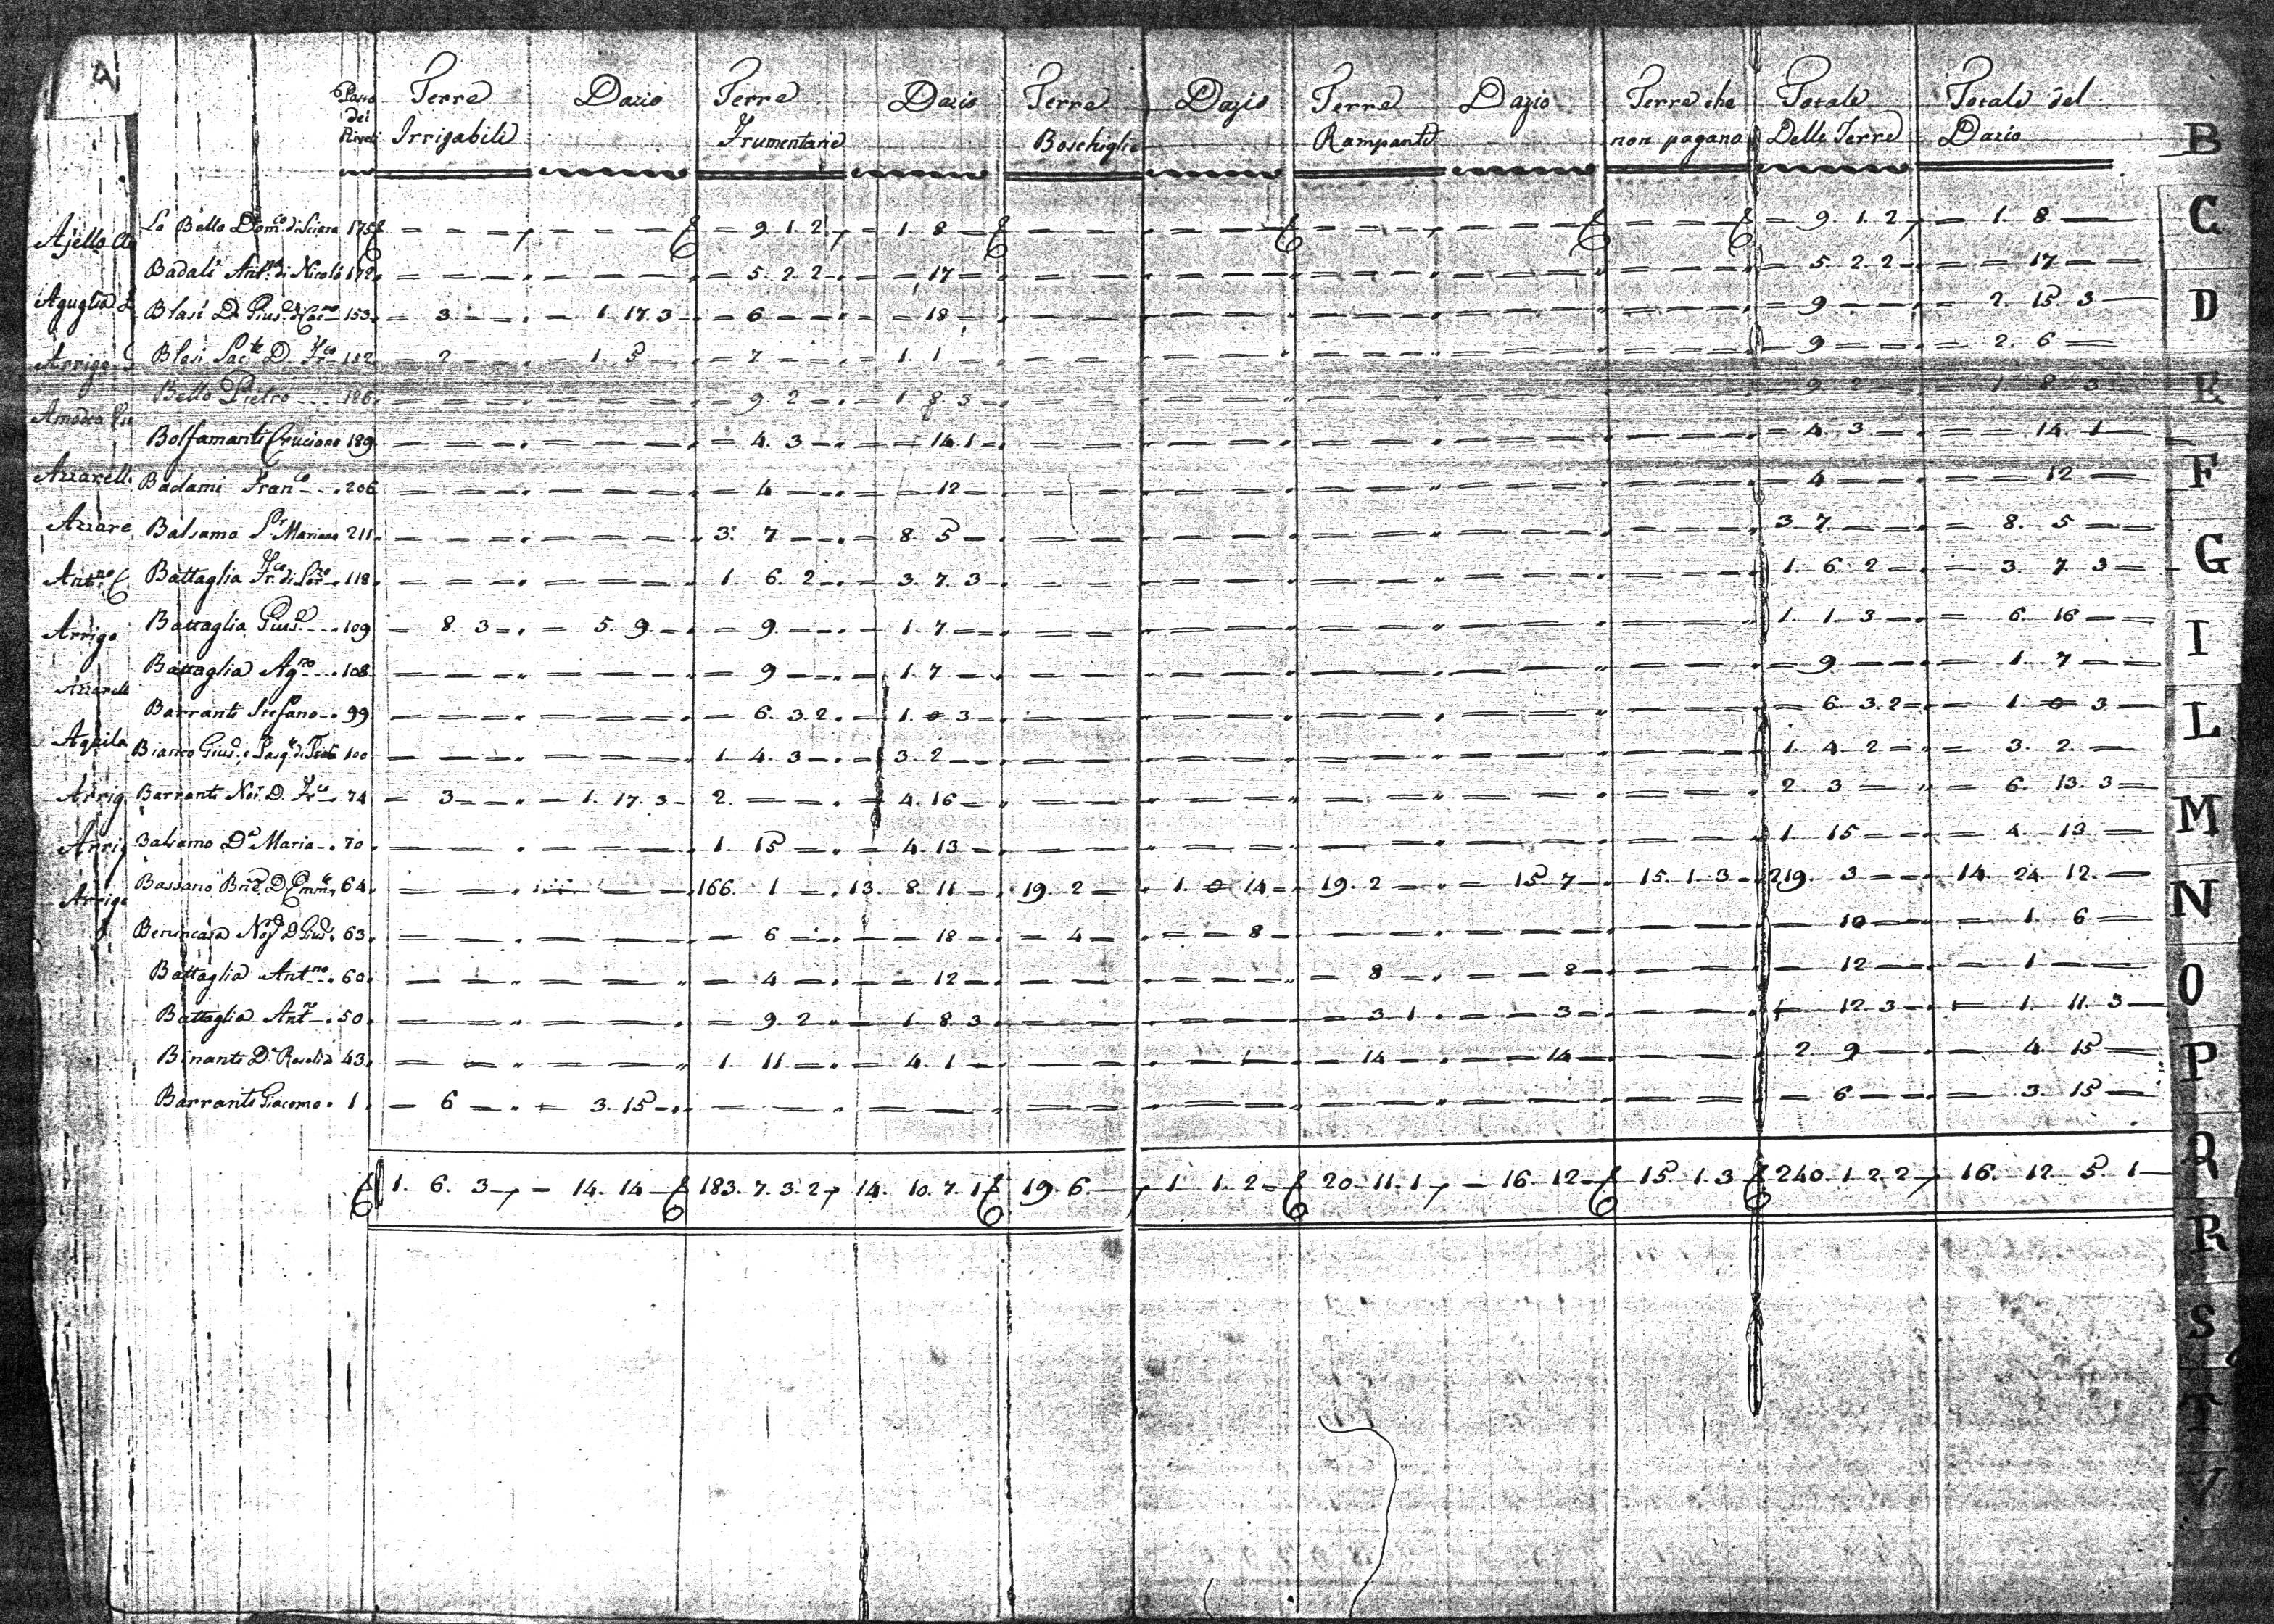 Terre Dazio Terre Dazio Terre Dazio Terre Dazio Terre che Totale Totale del
dei Irrigabili Frumentarie Boschiglie Rampanti non pagano Delle Terre Dazio
Lo Bello Dom.co di Sciara 175 = 9. 1. 2 = 1. 8 = 9. 1. 2 = 1. 8
Badali Ant.no di Nicolò 172 = 5. 2. 2 = 17 = 5. 2. 2 = 17
Blasi Di Gius.e di 153 = 3 = 1. 17. 3 = 6 = 18 = 9 = 2. 15. 3
Blasi Sac.te D. Fr.co 182 = 2 = 1. 5 = 7 = 1. 1 = 9 = 2. 6
Bello Pietro 186 = 9. 2 = 1. 8. 3 = 9. 2 = 1. 8. 3
Bolfamanti Cruciano 189 = 4. 3 = 14. 1 = 4. 3 = 14. 1
Badami Fran.co 206 = 4 = 12 = 4 = 12
Balsamo Mariano 211 3. 7 = 8. 5 3. 7 = 8. 5
Battaglia Fr.co di 118 1. 6. 2 = 3. 7. 3 1. 6. 2 = 3. 7. 3
Battaglia Gius.e 109 = 8. 3 = 5. 9 = 9 = 1. 7 1. 1. 3 = 6. 16
Battaglia Ag.no 108 = 9 = 1. 7 = 9 = 1. 7
Barranti Stefano 99 = 6. 3. 2 = 1. 0. 3 = 6. 3. 2 = 1. 0. 3
Bianco Gius.e e Pasq.e di 100 1. 4. 3 = 3. 2 1. 4. 2 = 3. 2
Barranti Not. D. Fr.co 74 = 3 = 1. 17. 3 2. = 4. 16 2. 3 = 6. 13. 3
Balsamo D.a Maria 70 1. 15 = 4. 13 1. 15 = 4. 13
Bassano D. Emm.e 64 166. 1 13. 8. 11 19. 2 1. 0. 14 19. 2 = 15. 7 15. 1. 3 219. 3 14. 24. 12
Benincasa D. Gius.e 63 = 6 = 18 = 4 = 8 10 = 1. 6
Battaglia Ant.no 60 = 4 = 12 = 8 = 8 12 = 1
Battaglia Ant.no 50 = 9. 2 = 1. 8. 3 = 3. 1 = 3 12. 3 1. 11. 3
Binanti D.a Rosalia 43 1. 11 = 4. 1 = 14 = 14 2. 9 = 4. 15
Barranti Giacomo 1 = 6 = 3. 15 = 6 = 3. 15
1. 6. 3 = 14. 14 183. 7. 3. 2 14. 10. 7. 1 19. 6 1. 1. 2 20. 11. 1 = 16. 12 15. 1. 3 240. 1. 2. 2 16. 12. 5. 1
Ajello
Aguglia
Arrigo
Azzarell
Azzare
Ant.no
Arrigo
Azzarell
Aquila
Arrig
Arrig
Arrigo
B
C
D
E
F
G
I
L
M
N
O
P
Q
R
S
T
V